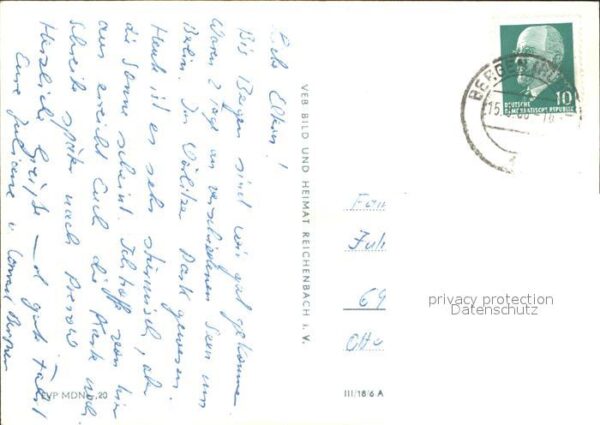 Liebe Eltern!
Bis Bergen sind wir gut gekommen.
Waren 2 Tage an verschiedenen Seen um
Berlin. Im Wörlitzer Park gewesen.
Heute ist es sehr stürmisch, aber
die Sonne scheint. Ich hoffe von hier
aus erreicht Euch die Karte noch.
Schreibe später nach Prerow
Herzliche Grüße und gute Fahrt
Eure Juliane u.
EVP MDN 0,20
VEB BILD UND HEIMAT REICHENBACH I. V.
III/18/6 A
BERGEN
15.
DEUTSCHE
DEMOKRATISCHE REPUBLIK
10
Fam
69
Otto
privacy protection
Datenschutz